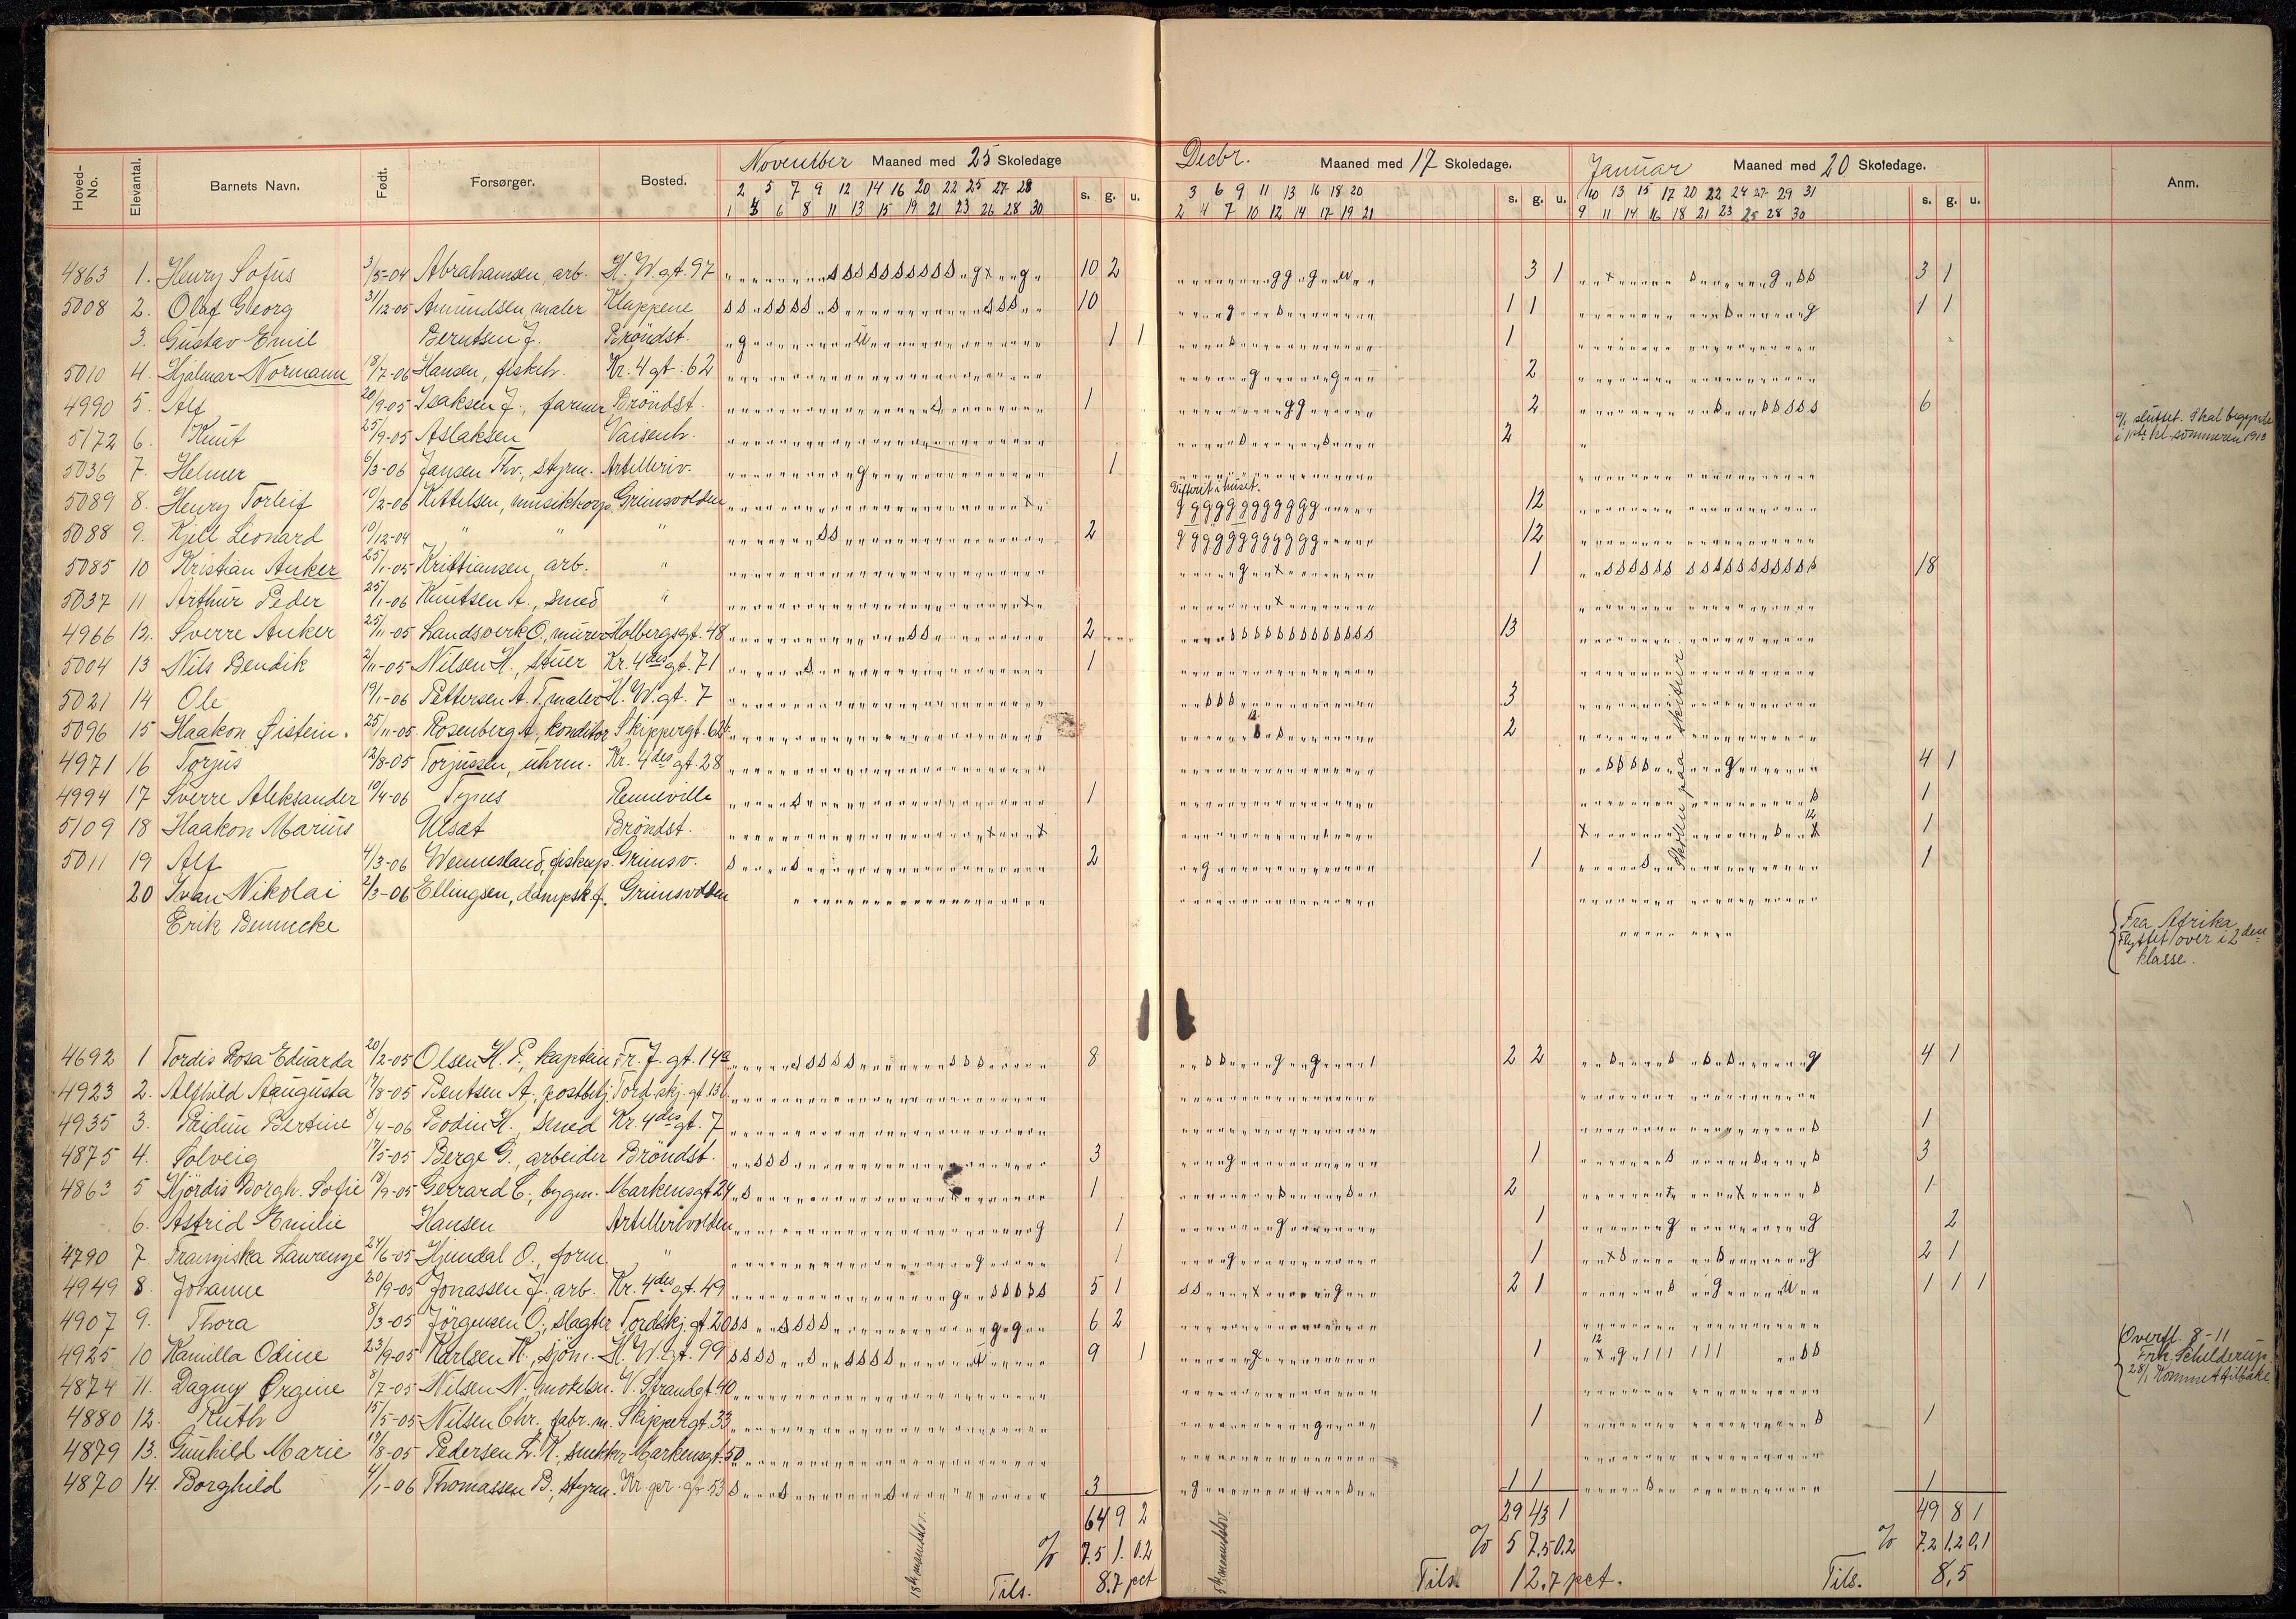 Hoved-No. Elevantal. Barnets Navn. Født. Forsørger. Bosted. November Maaned med 25 Skoledage s. g. u. Decbr. Maaned med 17 Skoledage. s. g. u. Januar Maaned med 20 Skoledage. s. g. u. Anm.
2 5 7 9 12 14 16 20 22 25 27 28 3 6 9 11 13 16 18 20 10 13 15 17 20 22 24 27 29 31
1 4 6 8 11 13 15 19 21 23 26 28 30 2 4 7 10 12 14 17 19 21 9 11 14 16 18 21 23 25 28 30
4863 1. Henry Sofus 3/5-04 Abrahamsen, arb. H. W. gt. 97 10 2 3 1 3 1
5008 2. Olaf Georg 31/12-05 Amundsen, maler Klappene 10 1 1 1 1
3. Gustav Emil Berntsen J. Bröndst. 1 1 1
5010 4. Hjalmar Normann 18/7-06 Hansen, fiskeh. Kr. 4 gt. 62 2
4990 5. Alf 20/9-05 Isaksen J., farmer Bröndst. 1 2 6
5172 6. Knut 25/9-05 Aslaksen Vaisenh. 2 9/1 sluttet. Skal begynde
i 1ste kl. sommeren 1913
5036 7. Helmer 6/3-06 Jansen Thv., styrm. Artilleriv. 1
Difterit i huset.
5089 8. Henry Torleif 10/2-06 Kittelsen, musikkorp. Grimsvolden 12
5088 9. Kjell Leonard 10/12-04 " " " 2 12
5085 10 Kristian Anker 25/1-05 Kristiansen, arb. " 1 18
5037 11 Arthur Peder 25/1-06 Knutsen A., smed "
4966 12. Sverre Anker 25/11-05 Landsverk O., murer Holbergsgt. 48 2 13
5004 13 Nils Bendik 2/11-05 Nilsen H., stuer Kr. 4des gt. 71 1
5021 14 Ole 19/1-06 Pettersen A. T., maler H. W. gt. 7 3
5096 15 Haakon Øistein. 25/11-05 Rosenberg A., konditor Skippergt. 62 2
4971 16 Torjus 12/8-05 Torjussen, uhrm. Kr. 4des gt. 28 4 1
4994 17 Sverre Aleksander 10/4-06 Tynes Renneville 1 1
5109 18 Haakon Marius Ulsæt Bröndst. 1
5011 19 Alf 4/3-06 Wennesland, fiskeop. Grimsv. 2 1 1
Skolen paa skitur
20 Ivan Nikolai 2/3-06 Ellingsen, dampsk.f. Grimsvolden
Erik Bennecke Fra Afrika
Flyttet over i 2den
klasse.
4692 1 Tordis Rosa Eduarda 20/2-05 Olsen H. P., kaptein Fr. J. gt. 14a 8 2 2 4 1
4923 2. Alfhild Aaugusta 17/8-05 Bentsen A., postbetj. Tord.skj. gt. 13b
4935 3. Reidun Bertine 8/4-06 Bodin H., smed Kr. 4des gt. 7 1
4875 4. Solveig 17/5-05 Berge G., arbeider Bröndst. 3 1 3
4863 5 Hjördis Borgh. Sofie 13/9-05 Gerrard C., bygm. Markensgt 24 1 2 1
6. Astrid Emilie Hansen Artillerivolden 1 1 2
4790 7 Franziska Laurenze 24/6-05 Hjemdal O., form. " 1 1 2 1
4949 8. Johanne 20/9-05 Jonassen J. arb. Kr. 4des gt. 49 5 1 2 1 1 1 1
4907 9. Thora 8/3-05 Jörgensen O., slagter Tordskj. gt. 20 6 2
4925 10 Kamilla Odine 23/9-05 Karlsen K., sjöm. H. W. gt. 99 9 1 1 Overfl. 8-11
Frk. Schilderup
28/1 kommet tilbake
4874 11. Dagny Örgine 8/7-05 Nilsen N., V. Strandgt. 40
4880 12. Ruth 15/5-05 Nilsen Chr. fabr. m. Skippergt. 33 1 1
4879 13. Gunhild Marie 17/8-05 Pedersen L. K., snekker Markensgt. 50
4870 14. Borghild 4/1-06 Thomassen B., styrm. Kr. pr. gt. 53 3 1 1 1
64 9 2 29 43 1 49 8 1
% 7.5 1. 0.2 % 5 7.5 0.2 % 7.2 1.2 0.1
Tils. 8.7 pct Tils. 12.7 pct. Tils. 8,5